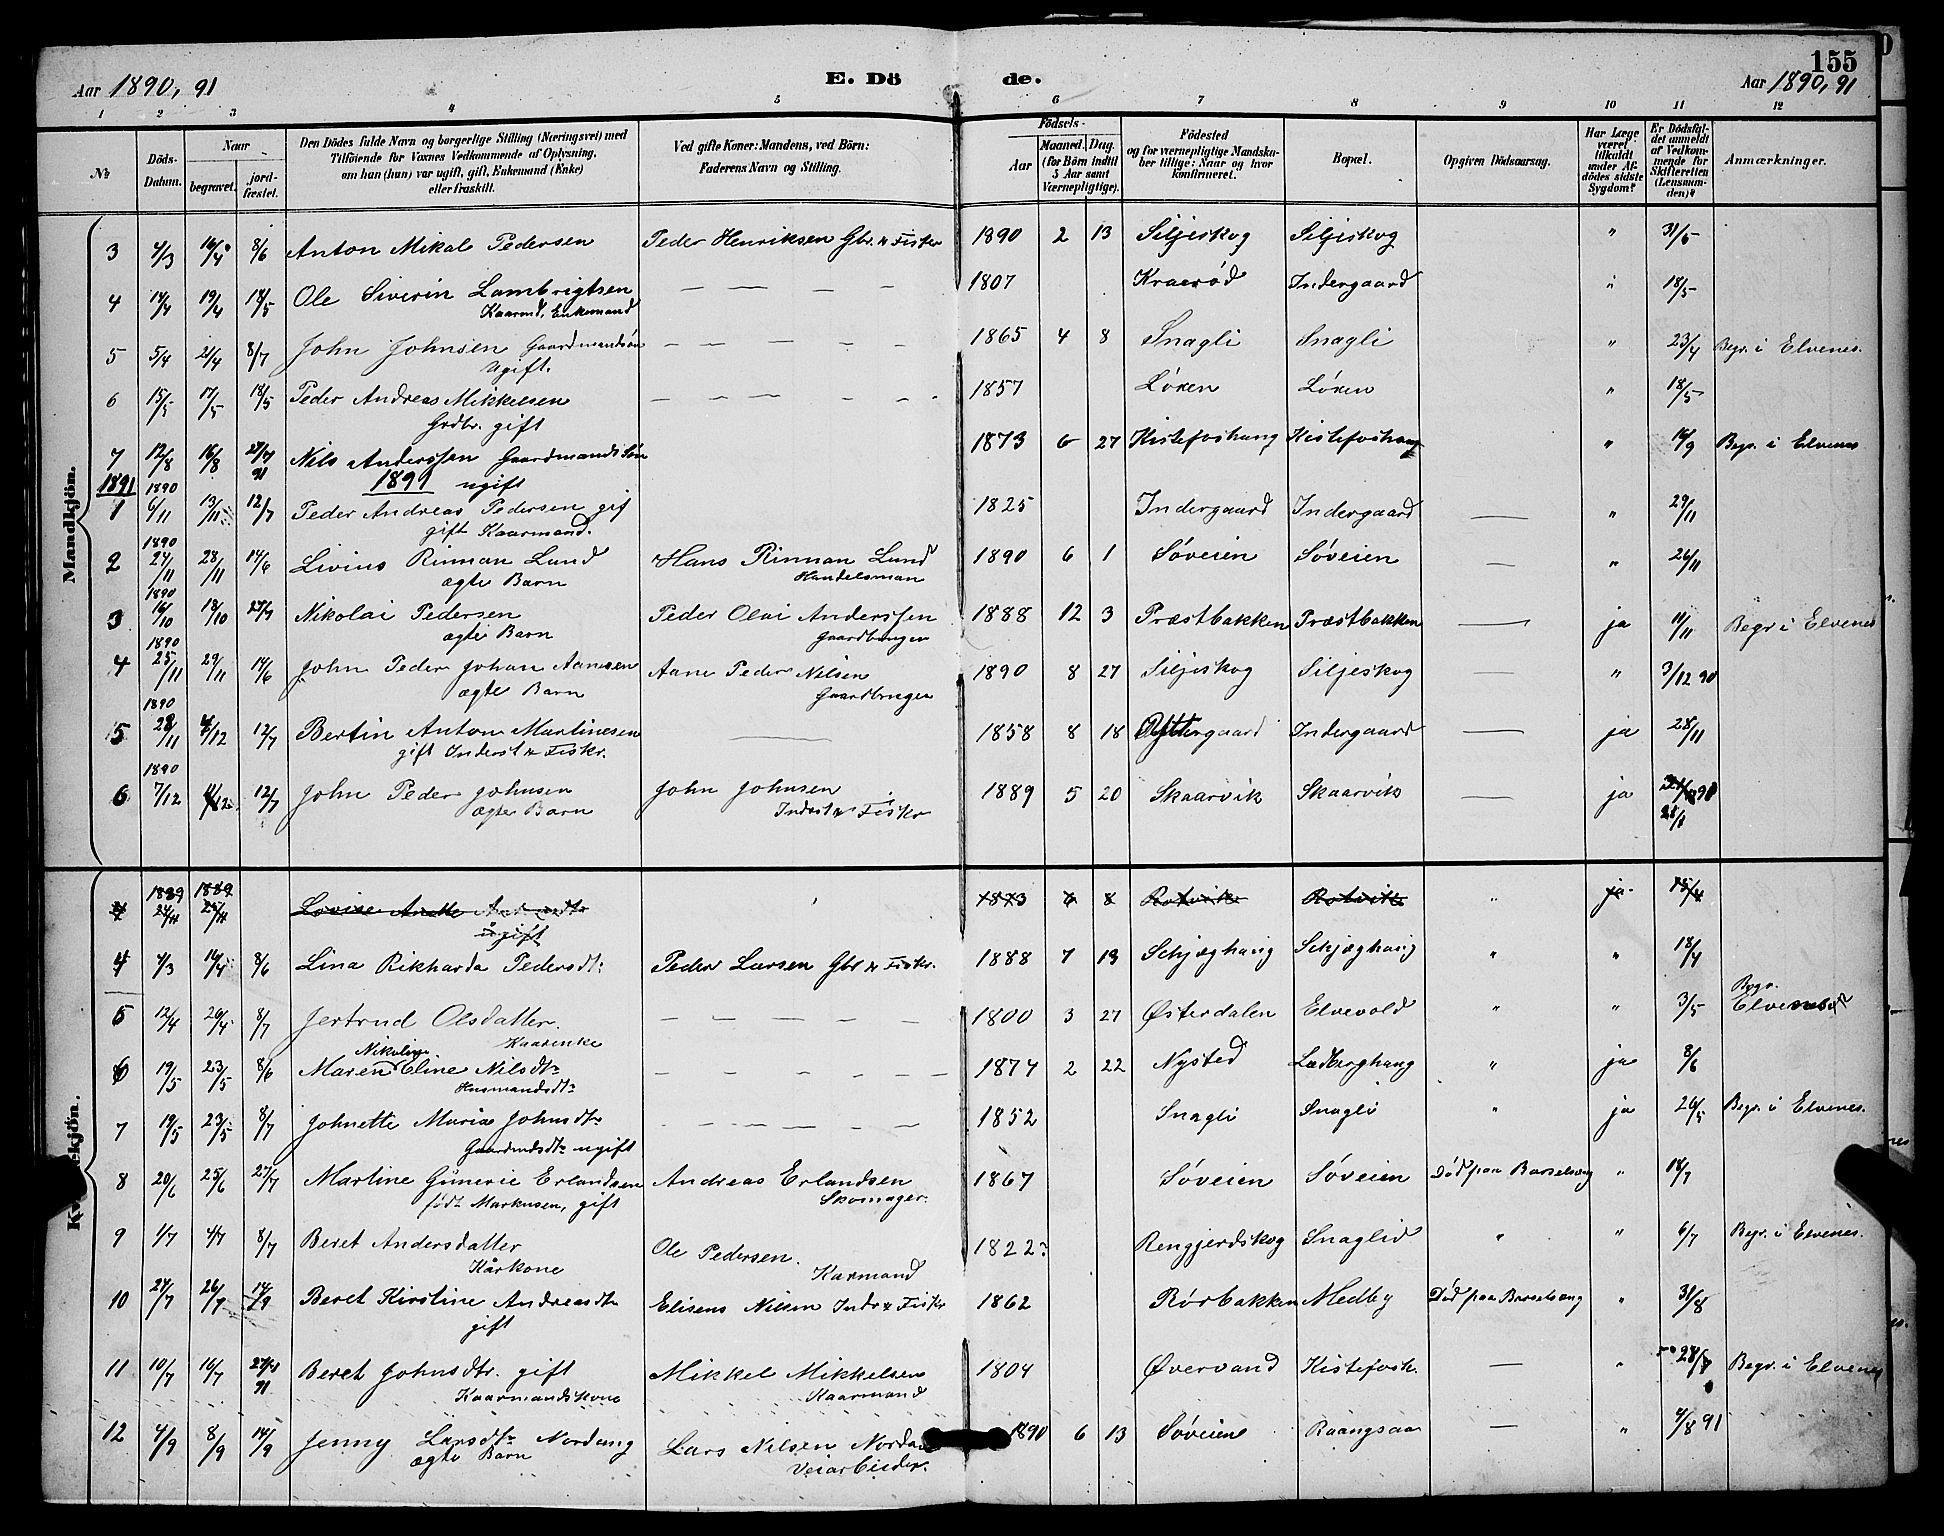 155
Aar 1890, 91 E. Dö de. Aar 1890, 91
1 2 3 4 5 6 7 8 9 10 11 12
No Döds-Datum. Naar begravet. jordfæstet. Den Dödes fulde Navn og borgerlige Stilling (Næringsvei) med Tilföiende for Voxnes Vedkommende af Oplysning, om han (hun) var ugift, gift, Enkemand (Enke) eller fraskilt. Ved gifte Koner: Mandens, ved Börn: Faderens Navn og Stilling. Födsels- Aar Maaned. Dag. (for Börn indtil 5 Aar samt Værnepligtige). Födested og for værnepligtige Mandskaber tillige: Naar og hvor konfirmeret. Bopæl. Opgiven Dödsaarsag. Har Læge været tilkaldt under Afdödes sidste Sygdom? Er Dödsfaldet anmeldt af Vedkommende for Skifteretten (Lensmanden)? Anmærkninger.
Mandkjön.
3 4/3 16/4 8/6 Anton Mikal Pedersen Peder Henriksen Gbr. & Fisker 1890 2 13 Siljeskog Siljeskog " 31/5
4 14/4 19/4 18/5 Ole Siverin Lambrigtsen — — — — 1807 Kraerød Indergaard " 18/5
Kaarmd, Enkemand
5 5/4 21/4 8/7 John Johnsen Gaardmandsön — — — — — 1865 4 8 Snagli Snagli " 23/4 Begr. i Elvenes.
Ugift.
6 15/5 17/5 18/5 Peder Andreas Mikkelsen — — — — — 1857 Løken Løken " 18/5
Grdbr. gift
7 12/8 16/8 27/7 91 Nils Anderssen Gaardmandssön 1873 6 27 Kistefoshaug Kistefoshaug " 16/9 Begr. i Elvenes
1891 1891 ugift
1 1890 6/11 13/11 12/7 Peder Andreas Pedersen gif 1825 Indergaard Indergaard — " 29/11
gift Kaarmand.
2 1890 24/11 28/11 14/6 Livius Rinnan Lund Hans Rinnan Lund 1890 6 1 Søveien Søveien — " 26/11
ægte Barn Handelsman
3 1890 16/10 18/10 27/7 Nikolai Pedersen Peder Olai Anderssen 1888 12 3 Præstbakken Præstbakken — ja 11/11 Begr i Elvenes
ægte Barn Gaardbruger
4 1890 25/11 29/11 14/6 John Peder Johan Aanesen Aane Peder Nilsen 1890 8 27 Siljeskog Siljeskog — " 3/12 90
ægte Barn Gaardbruger
5 1890 28/11 4/12 12/7 Bertin Anton Martinesen — 1858 8 18 Øttergaard Indergaard — ja 28/11
gift Inderst & Fiskr.
6 1890 7/12 11/12 12/7 John Peder Johnsen John Johnsen 1889 5 20 Skaarvik Skaarvik — ja
ægte Barn Inderst & Fiskr
Kvindekjön.
4 1889 24/4 1889 25/4 Lovise 1873 6 8 Rotvik Rotvik " ja 15/4
ugift
4 4/3 16/4 8/6 Lina Rikharda Pedersdtr Peder Larsen Gbr & Fiskr. 1888 7 13 Schjæghaug Schjæghaug " " 18/4
5 12/4 26/4 8/7 Jertrud Olsdatter. — — — — — 1800 3 27 Østerdalen Elvevold " " 3/5 Begr. Elvenes
Kaarenke
6 19/5 23/5 8/6 Maren Nikoline Eline Nilsdtr — — — — — 1874 2 22 Nysted Ladberghaug " ja 8/6
Husmandsdtr
7 19/5 23/5 8/7 Johnette Maria Johnsdtr — — — — — 1852 Snagli Snagli " ja 26/5 Begr. i Elvenes.
Gaardmdsdtr ugift
8 20/6 25/6 27/7 Martine Gunerie Erlandsen Andreas Erlandsen 1867 Søveien Søveien Död paa Barselseng " 18/7
född Markusen, gift Skomager.
9 1/7 4/7 8/7 Beret Andersdatter Ole Pedersen. 1822? Rengjerdskog Snaglid " " 6/7 Begr. i Elvenes.
Kårkone Karmand
10 24/7 26/7 14/9 Beret Kirstine Andreasdtr Elisens Nilsen Inds & Fiskr 1862 Rörbakken Medby Död paa Barselseng " 31/8
gift
11 10/7 16/7 27/7 91 Beret Johnsdtr. gift Mikkel Mikkelsen 1804 Øvervand Kistefosh. — " 28/7 Begr. i Elvenes
Kaarmandskone Kaarmand
12 4/9 8/9 14/9 Jenny Larsdtr Nordaug Lars Nilsen Nordau 1890 6 13 Søveien Raangsaa — " 4/8 91
ægte Barn Veiarbeider.